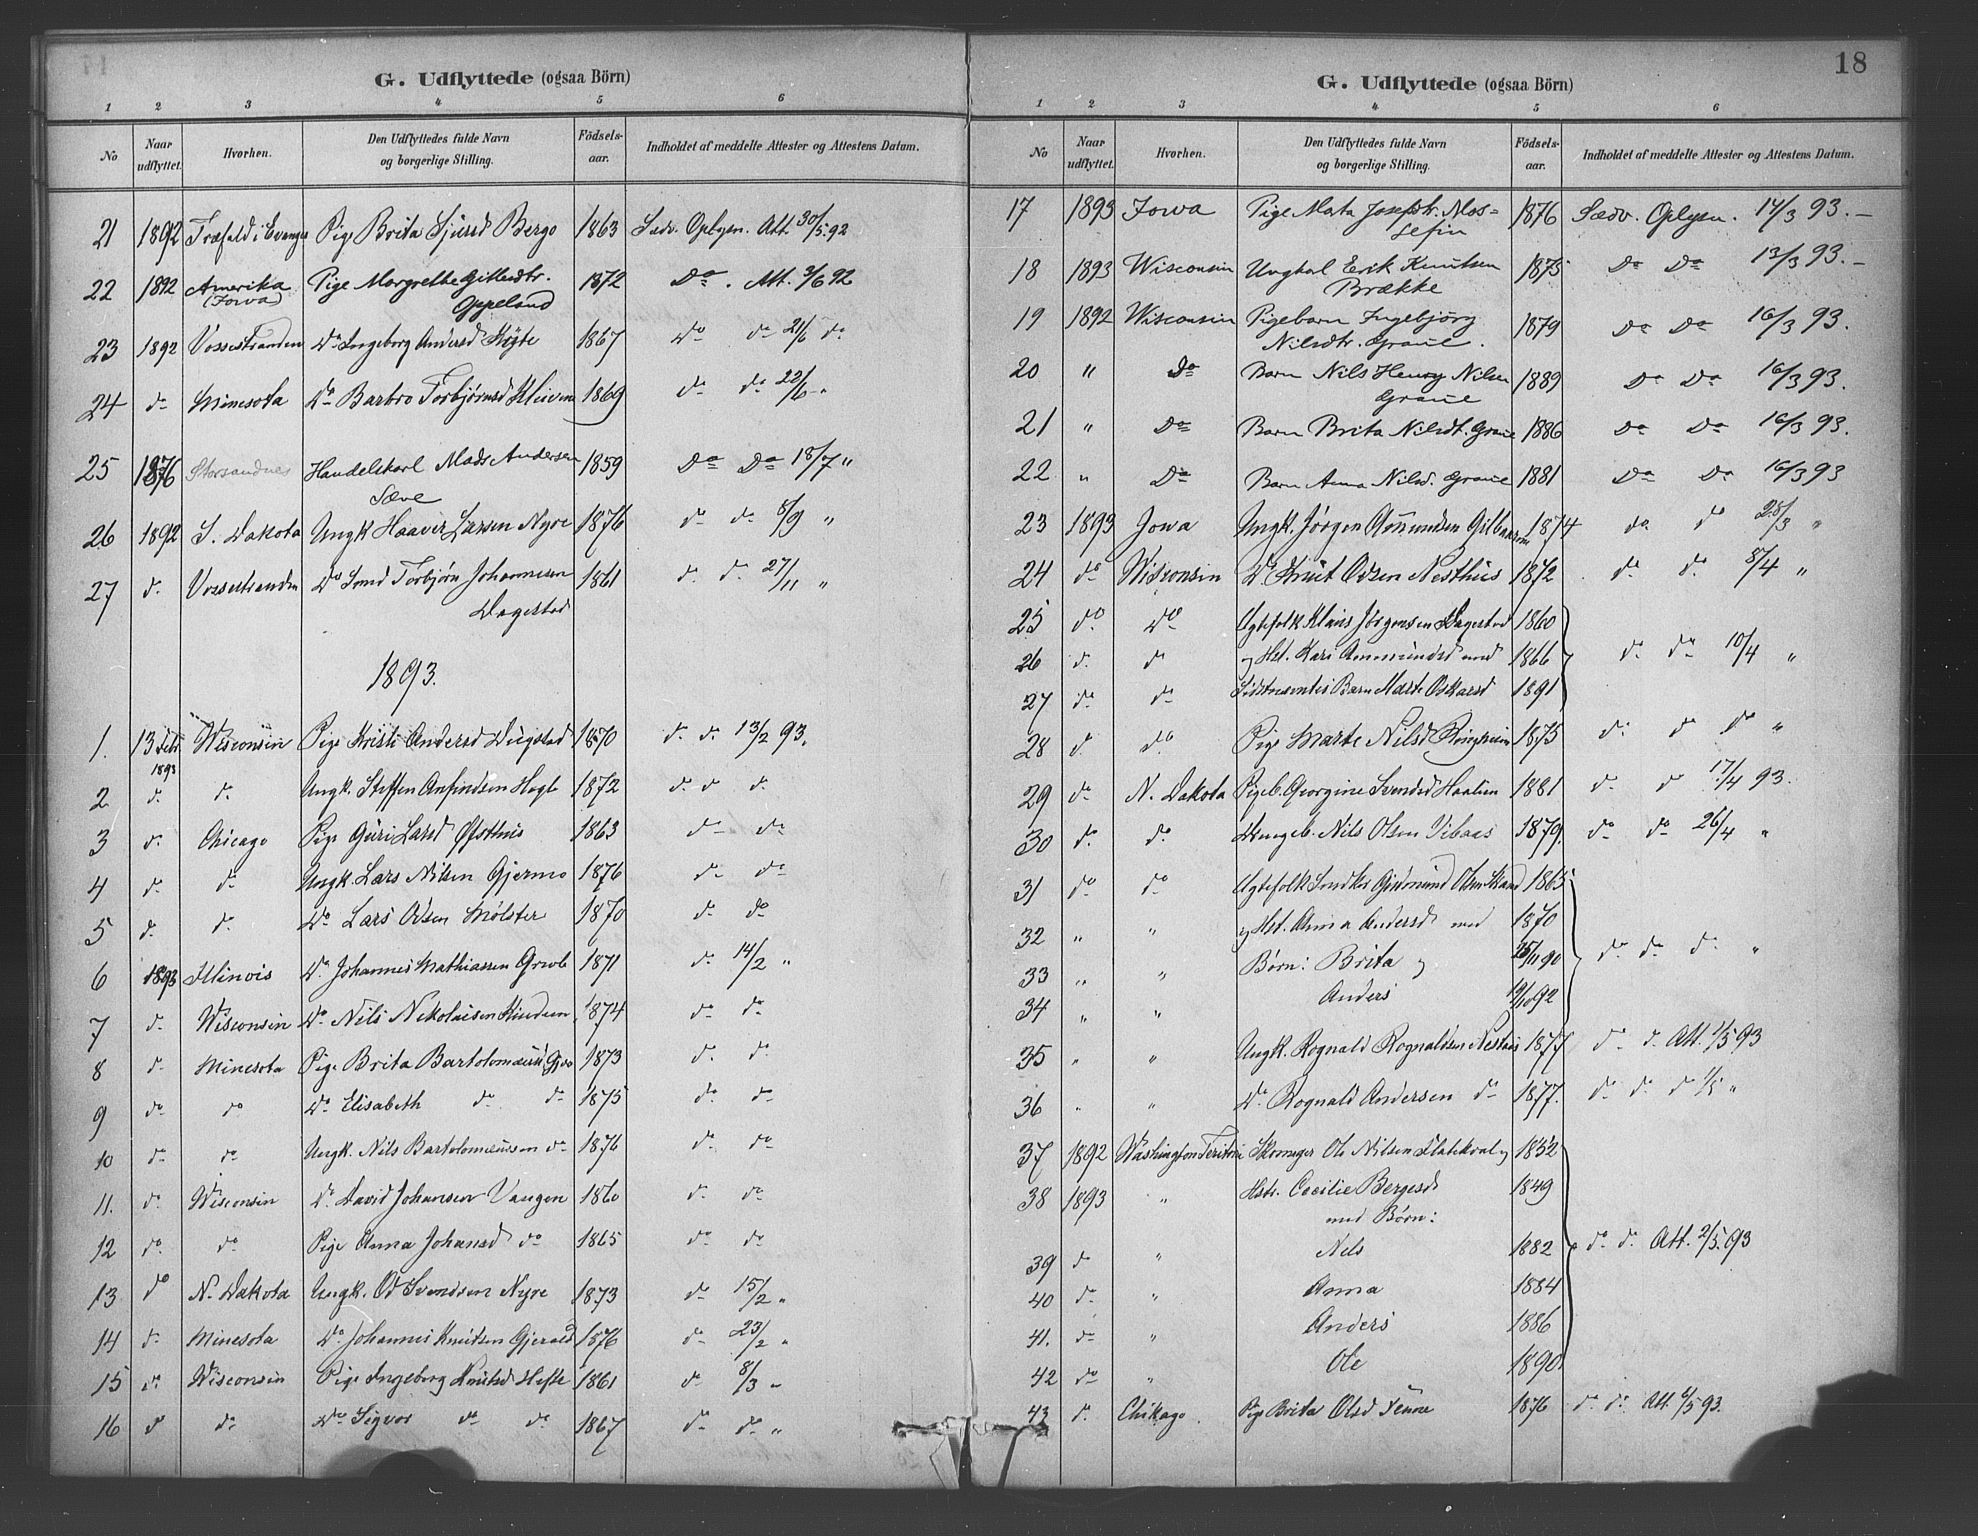 G. Udflyttede (ogsaa Börn)
1 2 3 4 5 6
No Naar udflyttet. Hvorhen. Den Udflyttedes fulde Navn og borgerlige Stilling. Födselsaar. Indholdet af meddelte Attester og Attestens Datum.
21 1892 Træfald i Evanger Pige Brita Sjursd Bergo 1863 Sædv. Oplysn. Att. 30/5 92
22 1892 Amerika (Iowa) Pige Margrethe Gitlesdtr. Eggeland 1872 Do . Att. 3/6 92
23 1892 Vossestranden Do Ingeborg Andersd Kÿte 1867 Do do 21/6 do
24 do Minesota Do Barbro Torbjörnsd Kleiven 1869 do do 22/6 "
25 1876 Storsandnes Handelskarl Mads Andersen Sæve 1859 Do Do 18/7 "
26 1892 S. Dakota Ungk Haaver Larsen Nyre 1876 do do 8/9 "
27 d. Vossestranden Do Smed Torbjørn Johannesen Dagestad 1861 d. d. 27/11 "
1893.
1. 13 Febr 1893 Wisconsin Pige Kristi Andersd Dugstad 1870 d. d. 13/2 93.
2 d. d. Ungk. Steffen Anfindsen Hegle 1872 d. d d.
3 d. Chicago Pige Guri Larsd Østhus 1863 d do
4 d. d. Ungk. Lars Nilsen Gjermo 1876 d. do
5 d. d. Do Lars Odsen Mølster 1870 d. do
6 1893 Illinois Do Johannes Mathiassen Grove 1871 d. 14/2 "
7 d. Wisconsin Do Nils Nikolaisen Kindem 1874 do do
8 d. Minesota Pige Brita Bartolomæusd Gjos 1873 d. d.
9 do do Do Elisabeth do do 1875 do do
10 do do Ungk. Nils Bartolomæussen do 1876 do do
11. do Wisconsin Do David Johansen Vangen 1860 d. do
12 do do Pige Anna Johansd do 1865 do do
13 do N. Dakota Ungk. Od Svendsen Nyre 1873 do 15/2 "
14 d. Minesota Do Johannes Knutsen Gjerald 1876 d. 23/2 "
15 d. Wisconsin Pige Ingeborg Knutsd Hefte 1861 do 8/3 "
16 d do Do Sigvor do do 1867 d do "
18
G. Udflyttede (ogsaa Börn)
1 2 3 4 5 6
No Naar udflyttet. Hvorhen. Den Udflyttedes fulde Navn og borgerlige Stilling. Födselsaar. Indholdet af meddelte Attester og Attestens Datum.
17 1893 Iowa Pige Marta Josefstr. Mos= 1876 Sædv. Oplysn. 14/3 93.
18 1893 Wisconsin Ungkarl Erik Knutsen Brække 1875 Do Do 13/3 93.
19 1892 Wisconsin Pigebarn Ingebjörg Nilsdtr. Graue. 1879 Do Do 16/3 93.
20 " Do Barn Nils Henry Nilsen Graue 1889 Do Do 16/3 93.
21 " Do Barn Brita Nilsdt. Graue 1886 Do Do 16/3 93.
22 " Do Barn Anna Nilsd. Graue 1881 Do Do 16/3 93
23 1893 Iowa Ungk. Jørgen Amunden 1874 do do 25/3 "
24 do Wisconsin Do Knut Odsen Nesthus 1872 do do 8/4 "
25 do Do Ægtefolk Klaus Jørgensen Dagestad 1860
26 d. d og Hst. Kari Ammundsd med 1866 do do 10/4 "
27 d. d. Sidstnævntes Barn Marte Oskarsd 1891
28 d do Pige Marte Nilsd Ringheim 1875 d. d do "
29 do N. Dakota Pigeb. Georgine Svendsd 1881 d. d 17/4 93.
30 do do Drengeb. Nils Olsen Vibaas 1879. do do 26/4 "
31 do do Ægtefolk Gudmund Olsen 1865
32 " " og Hst. Anna Andersd med 1870
33 " " Børn: Brita og 25/11 90 do do d. "
34 " " Anders 19/10 92
35 " " Ungk. Rognald Rognaldsen 1877 do d. Att. 1/5 93
36 " " Do Rognald Andersen do 1877. do do d 1/5 "
37 1892 Washington Skomager Ole Nilsen og 1852
38 1893 " Hstr. Cecilie Bergesd 1849
med Børn:
39 d " Nels 1882 do d. Att. 2/5 93
40 do " Anna 1884
41. do " Anders 1886
42 do " Ole 1890
43 d. Chikago Pige Brita Olsd 1876 d. d. Att. 6/5 93.